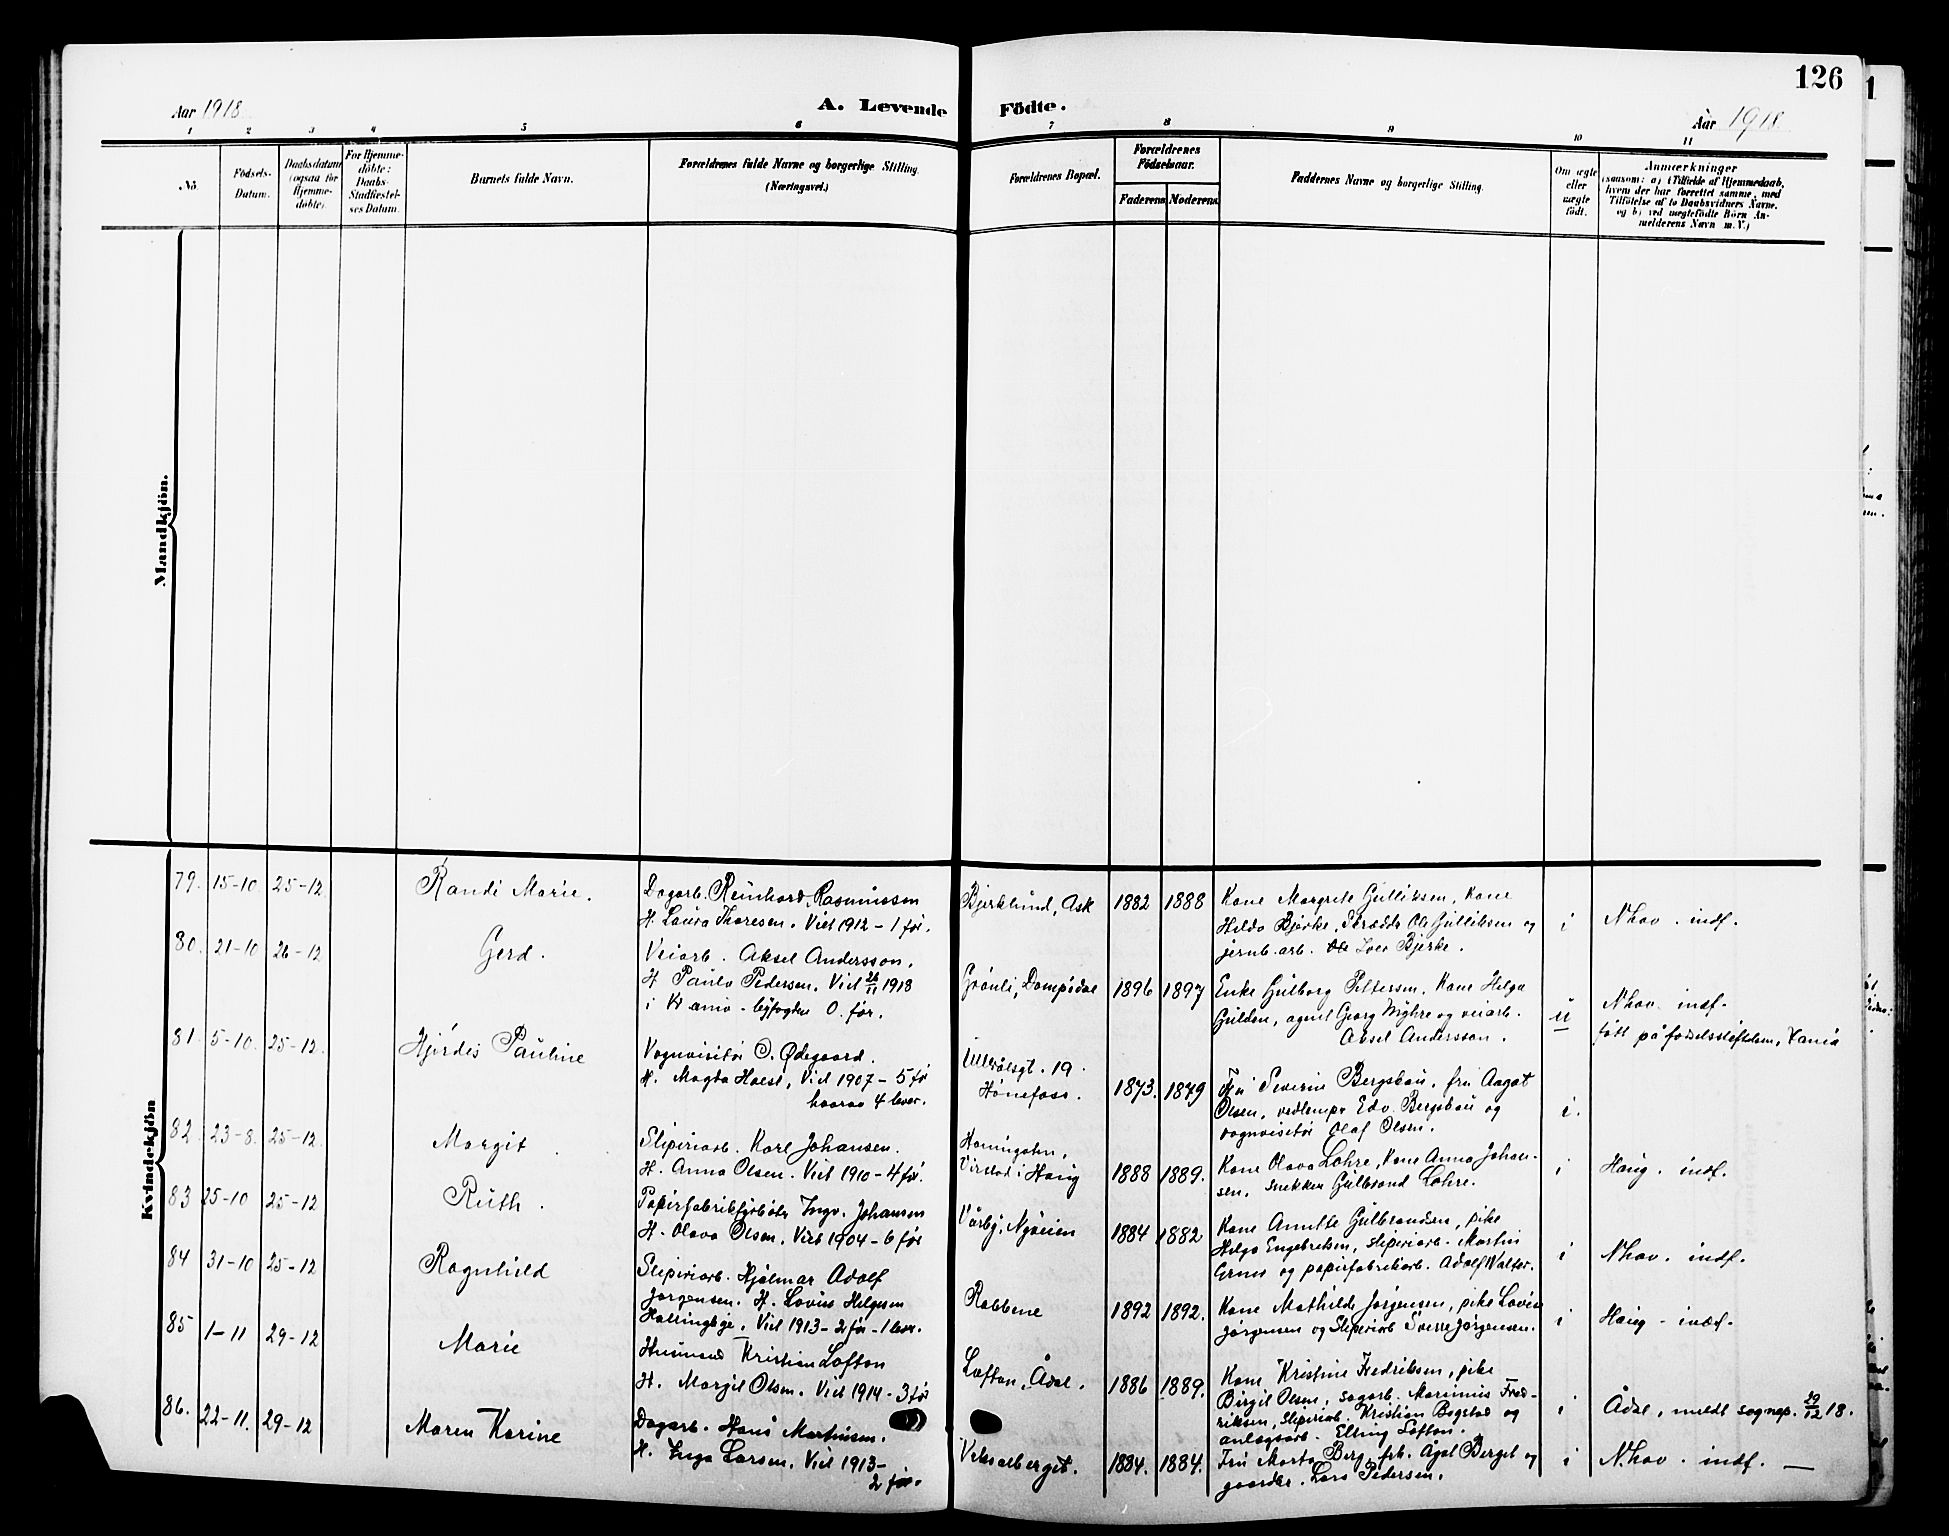 126
Aar 1918
A. Levende Födte.
Aar 1918
1 2 3 4 5 6 7 8 9 10 11
No.
Födsels-Datum.
Daabsdatum (ogsaa for Hjemme-döbte).
For Hjemme-döbte: Daabs-Stadfæstel-ses Datum.
Barnets fulde Navn.
Forældrenes fulde Navne og borgerlige Stilling.
(Næringsvei.)
Forældrenes Bopæl.
Forældrenes Födselsaar.
Faderens Moderens
Faddernes Navne og borgerlige Stilling.
Om ægte eller uægte födt.
Anmærkninger
(saasom: a) i Tilfælde af Hjemmedaab,
hvem der har forrettet samme, med
Tilföielse af to Daabsvidners Navne.
og b) ved uægtefödte Börn An-
melderens Navn m. V.)
Mandkjön.
Kvindekjön
79. 15-10 25-12 Randi Marie.
Dagarb. Reinhard Rasmussen
H. Laura Thoresen. Viet 1912 - 1 før.
Bjerklund, Ask 1882 1888
Kone Margrete Gulliksen, Kone
Hilda Bjerke, Skrædde Ole Gulliksen og
jernb. arb. Ole Iver Bjerke.
i N hov. indf.
80. 21-10 26-12 Gerd.
Veiarb. Aksel Andersson,
H Paula Pedersen. Viet 26/11 1918
i Krania - byfogden 0. før.
Grønli, Dampsdal 1896 1897
Enke Gulborg Pettersen, Kone Helga
Gulden, agent Georg Myhre og veiarb.
Aksel Andersson.
u N hov. indf.
født på fødselsstiftelsen, Xania
81. 5-10. 25-12. Hjørdis Pauline
Vognvisitør O. Ødegaard.
H. Magda Hoest, Viet 1907 - 5 før
hvorav 4 lever.
Ullerålsgt. 19.
Hønefoss. 1873. 1879
Fru Severine Bergsbau, fru Aagot
Olsen, vedlempr Edv. Bergsbau og
vognvisitør Olaf Olsen.
i.
82. 23-8. 25-12. Margit.
Sliperiarb. Karl Johansen.
H. Anna Olsen. Viet 1910 - 4 før.
Virstad i Haug 1888 1889.
Kone Olava Lohre, Kone Anna Johan-
sen, snekker Gulbrand Lohre.
i Haug. indf.
83 25-10 25-12 Ruth.
Papirfabrikfyrbøter Ingv. Johansen
H. Olava Olsen. Viet 1904 - 6 før
Vårby, Nyveien 1884 1882
Kone Anette Gulbrandsen, pike
Helga Engebretsen, sliperiarb. Martin
Grue og papirfabrikarb. Adolf Walter.
i N hov. indf.
84 31-10 25-12 Ragnhild
Sliperiarb. Hjalmar Adolf
Jørgensen. H. Lovise Helgesen
Hallingbye. Viet 1913 - 2 før - 1 lever.
Rabbene 1892 1892.
Kone Mathilde Jørgensen, pike Lovise
Jørgensen og Sliperiarb Sverre Jørgensen.
i Haug - indf.
85 1-11 29-12 Marie
Husmand Kristian Lofton
H. Margit Olsen. Viet 1914 - 3 før
Lofton, Ådal. 1886 1889.
Kone Kristine Fredriksen, pike
Birgit Olsen, sagarb. Marinius Fred-
riksen, sliperiarb. Kristian Bogstad og
anlægsarb. Elling Lofton.
i Ådal, meldt sognep. 29/12 18.
86. 22-11. 29-12 Maren Karine
Dagarb. Hans Martinsen.
H. Inga Larsen. Viet 1913 -
2 før.
Veksalberget. 1884. 1884.
Fru Marta Berg, frk. Ågot Berget og
gaardbr. Lars Pedersen.
i N. hov. indf. —